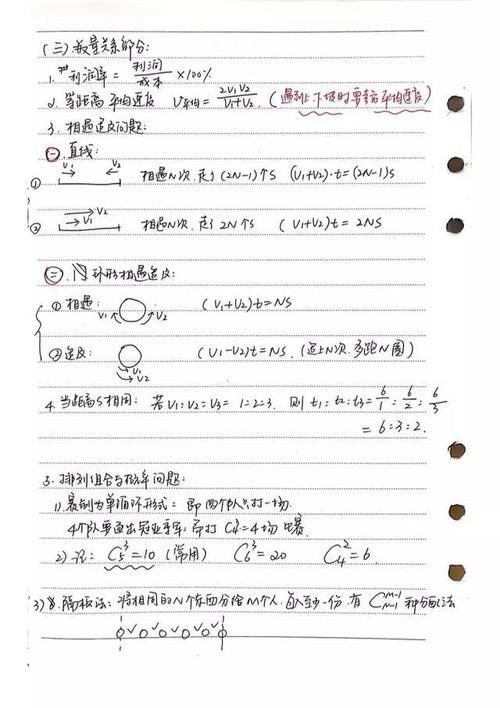 (三) 数量关系部分:
1. 利润率 = 利润/成本 ×100%
2. 等距离平均速度 V平均 = 2V1V2/V1+V2. (遇到上下坡时要考虑平均速度)
3. 相遇追及问题:
㊀. 直线:
① V1 V2 相遇N次, 走了(2N-1)个S (V1+V2)·t=(2N-1)S
② V2 V1 相遇N次, 走了2N个S (V1+V2)t = 2NS
㊁. 环形相遇追及:
① 相遇: V1 V2 (V1+V2)t=NS
② 追及: V1 V2 (V1-V2)t=NS. (追上N次, 多跑N圈)
4. 当距离S相同: 若V1:V2:V3= 1:2:3. 则 t1:t2:t3= 6/1 : 6/2 : 6/3
= 6:3:2.
5. 排列组合与概率问题:
1) 赛制为单循环形式: 即两个队只打一场.
4个队要选出冠亚季军: 需打 C4 =4场比赛.
2) 记: C5^3=10 (常用) C6^3=20 C4^2=6.
3) 隔板法: 将相同的N个东西分给M个人, 每人至少一份, 有 C_{n-1}^{m-1} 种分配法